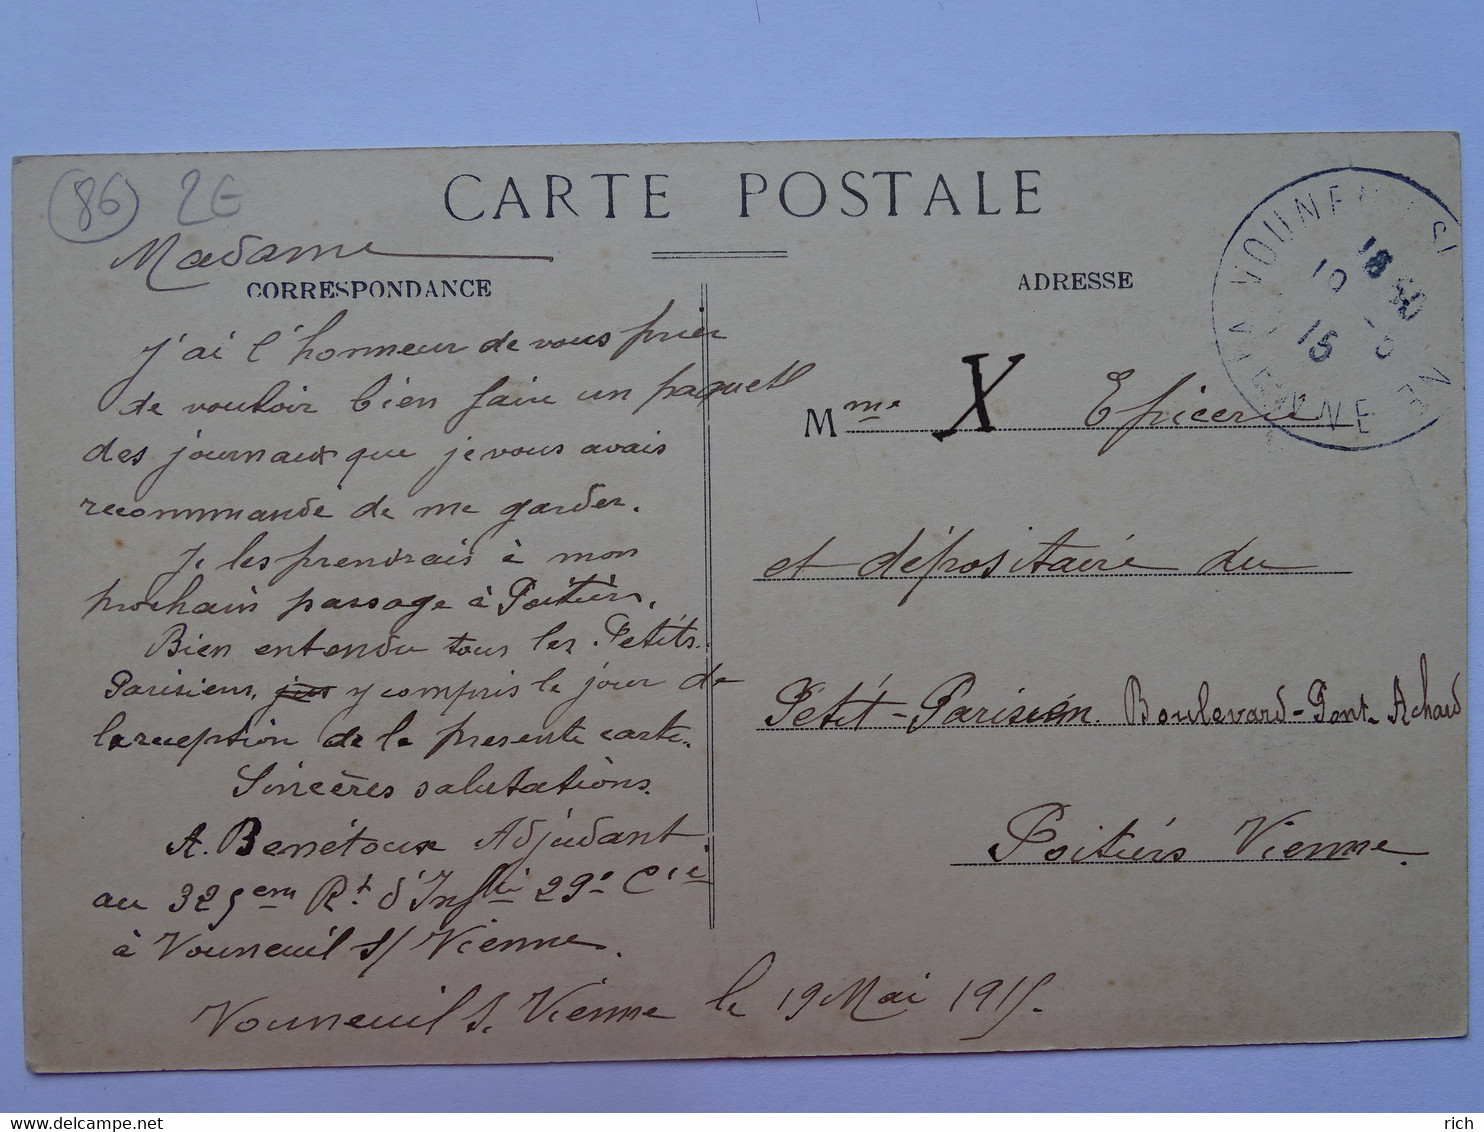 (86) 2€
CARTE POSTALE
Madame
CORRESPONDANCE
J'ai l'honneur de vous prier
de vouloir bien faire un paquet
des journaux que je vous avais
recommandé de me garder.
Je les prendrais à mon
prochain passage à Poitiers.
Bien entendu tous les Petits-
Parisiens, y compris le jour de
la réception de la présente carte.
Sincères salutations.
A. Benétoux Adjudant
au 325eme Rt. d'Inftie 29e Cie
à Vouneuil s/ Vienne.
Vouneuil s. Vienne le 19 Mai 1915.
ADRESSE
Mme X Epicerie
et dépositaire du
Petit-Parisien. Boulevard-Pont-Achard
Poitiers Vienne.
VOUNEUIL SUR VIENNE
VIENNE
delcampe.net
rich